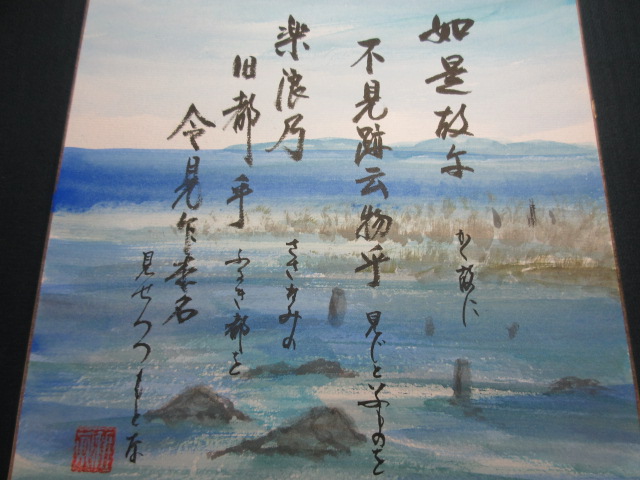 如是故尓 かく故に
不見跡云物乎 見じといふものを
楽浪乃 ささなみの
旧都乎 ふるき都を
令見乍本名 見せつつもとな